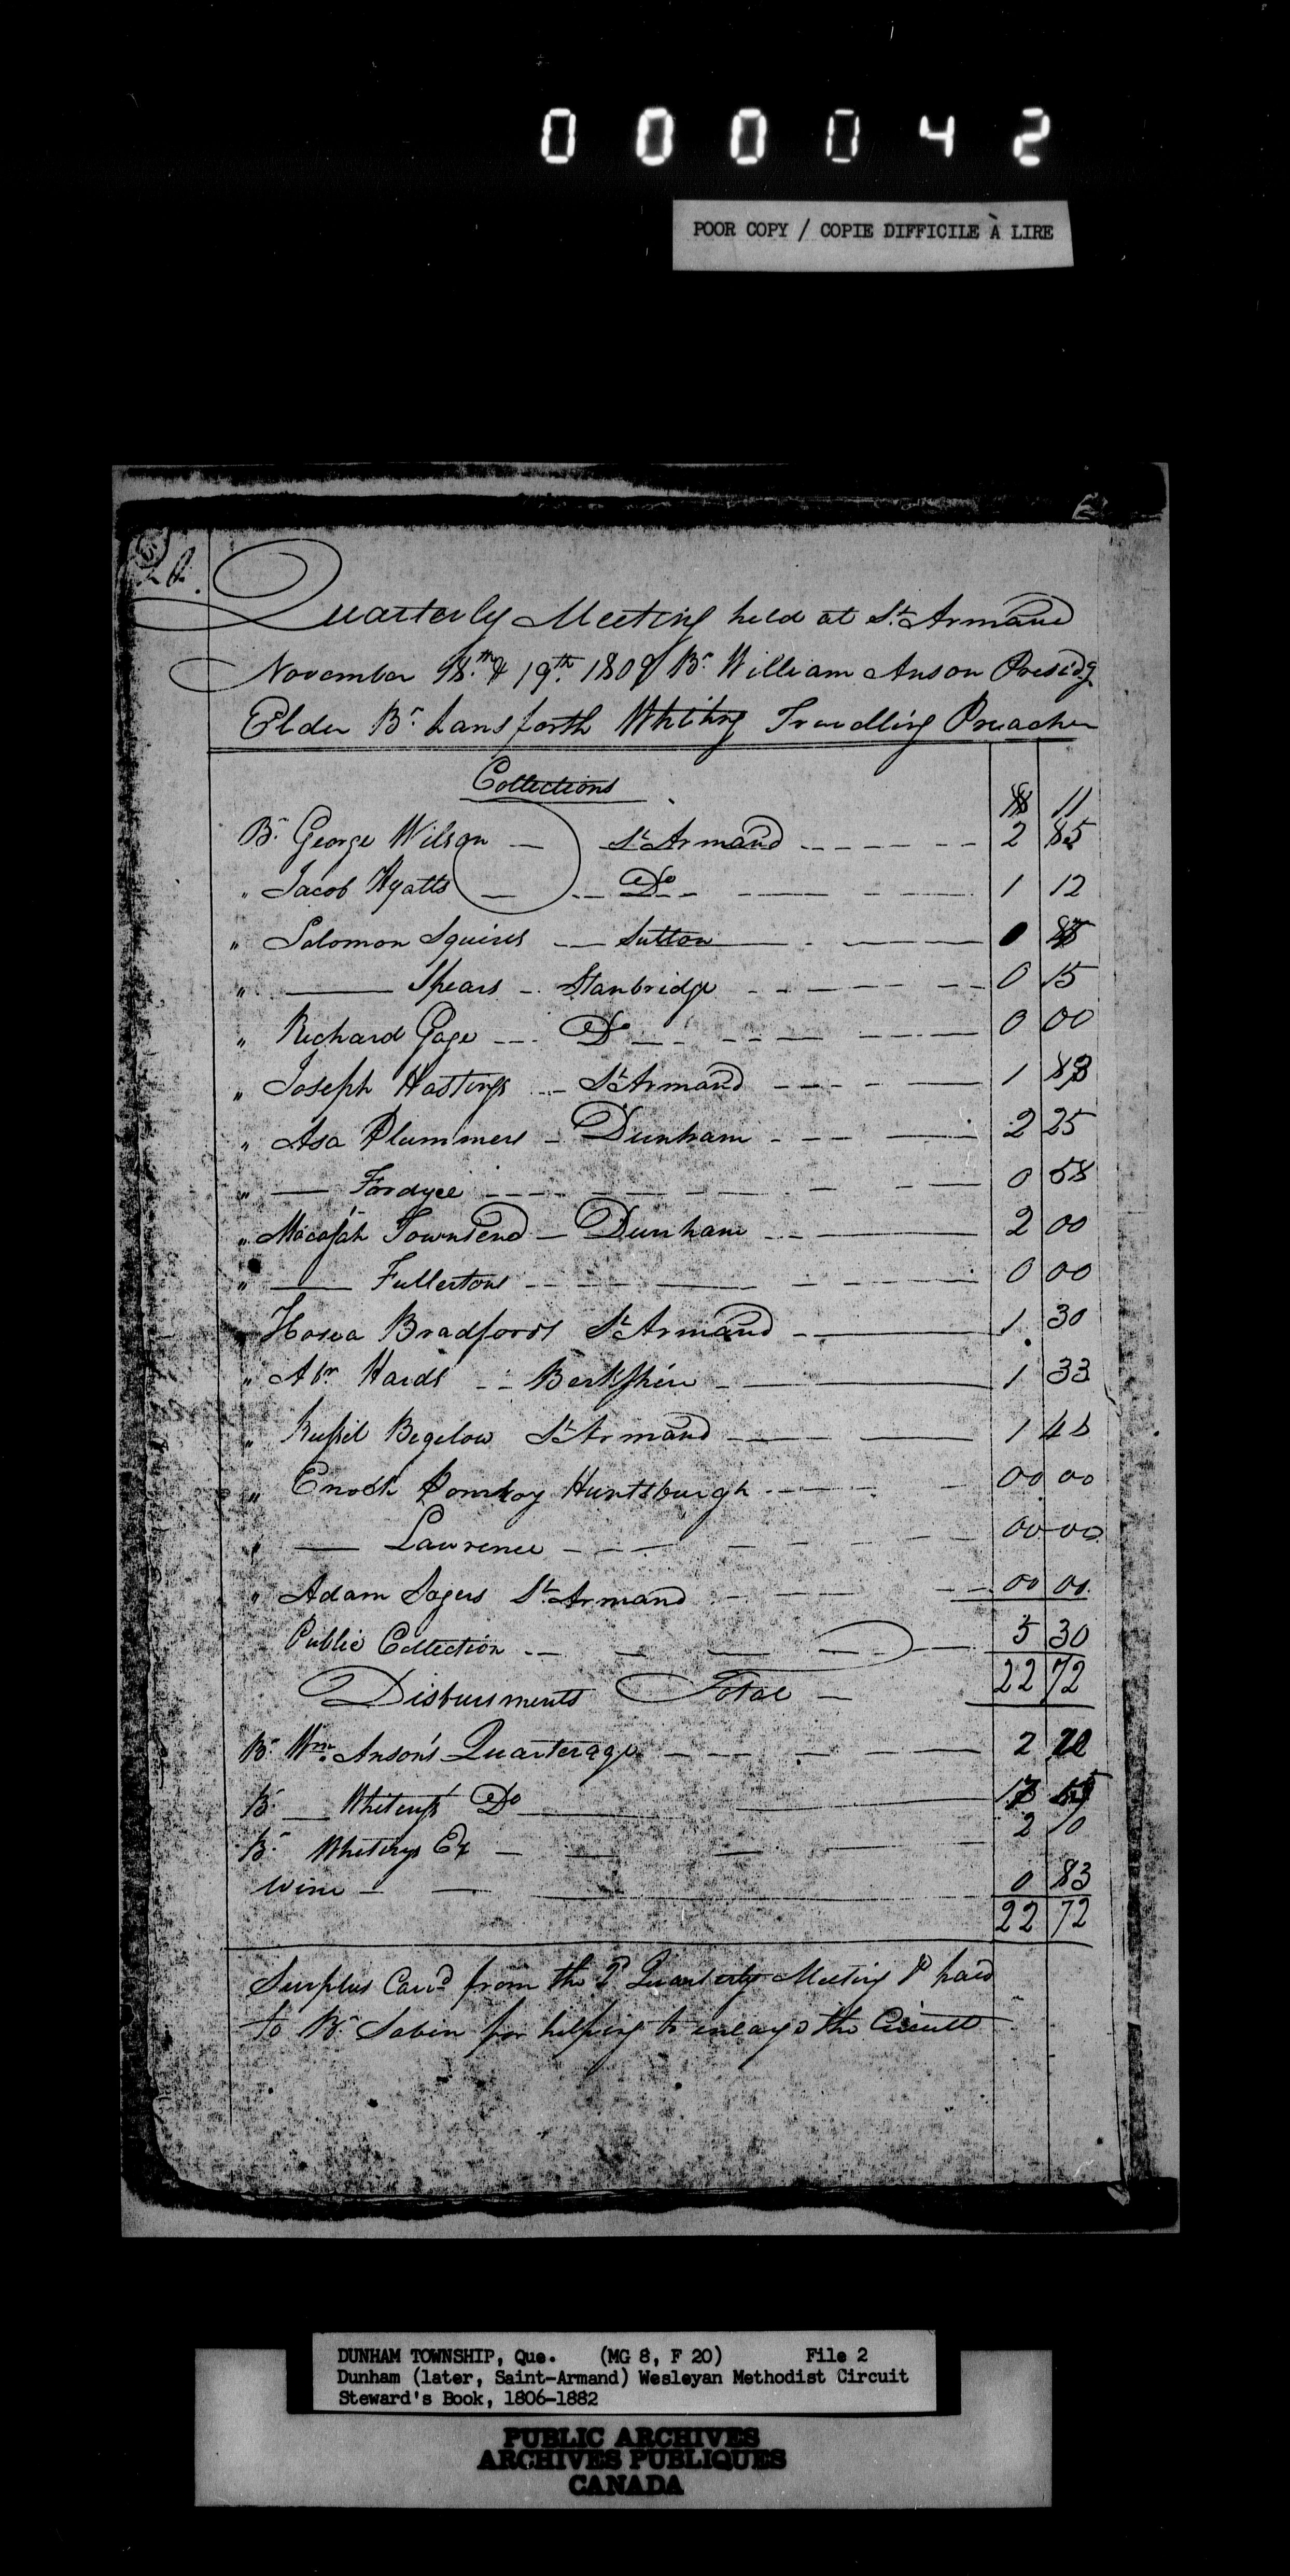 000042
POOR COPY / COPIE DIFFICILE À LIRE
Quarterly Meeting held at St. Armand
November 18.th & 19th. 1809 Br. William Anson Presidg
Elder Br. Lansforth Whiting Travelling Preacher
Collections
Br. George Wilson — St Armand 2 85
" Jacob Hyatts — Do 1 12
" Solomon Squires — Sutton 0
" — Spears - Stanbridge 0 15
" Richard Gage — Do 0 00
" Joseph Hastings — St Armand 1 83
" Asa Plummers — Dunham 2 25
" — Fordyce 0 58
" Macajah Townsend — Dunham 2 00
" — Fullertons 0 00
" Hosea Bradfords St Armand 1 30
" Abr Hards — Berkshire 1 33
" Russel Bigelow St Armand 1 45
" Enoch Pomroy Huntsburgh 00 00
" — Lawrence 00 00
" Adam Sagers St. Armand 00 00
Public Collection 5 30
Disbursments Total — 22 72
Br. Wm. Anson's Quarterage 2
Br. — Whitings Do 17
Br. Whitings Ex — 2 10
Wine — 0 83
22 72
Surplus Card from the Quarterly Meeting paid
to Br. Sabin for helping to enlarge the Circuit
DUNHAM TOWNSHIP, Que. (MG 8, F 20) File 2
Dunham (later, Saint-Armand) Wesleyan Methodist Circuit
Steward's Book, 1806-1882
PUBLIC ARCHIVES
ARCHIVES PUBLIQUES
CANADA